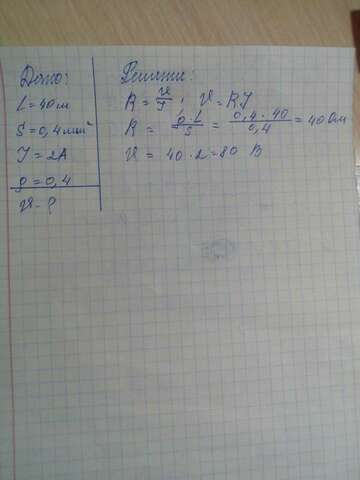 Дано:
l = 40 м
S = 0,4 мм²
I = 2А
ρ = 0,4
U - ?
Решение:
R = U/I ; U = R·I
R = ρ·l/S = 0,4·40/0,4 = 40 Ом
U = 40·2 = 80 В